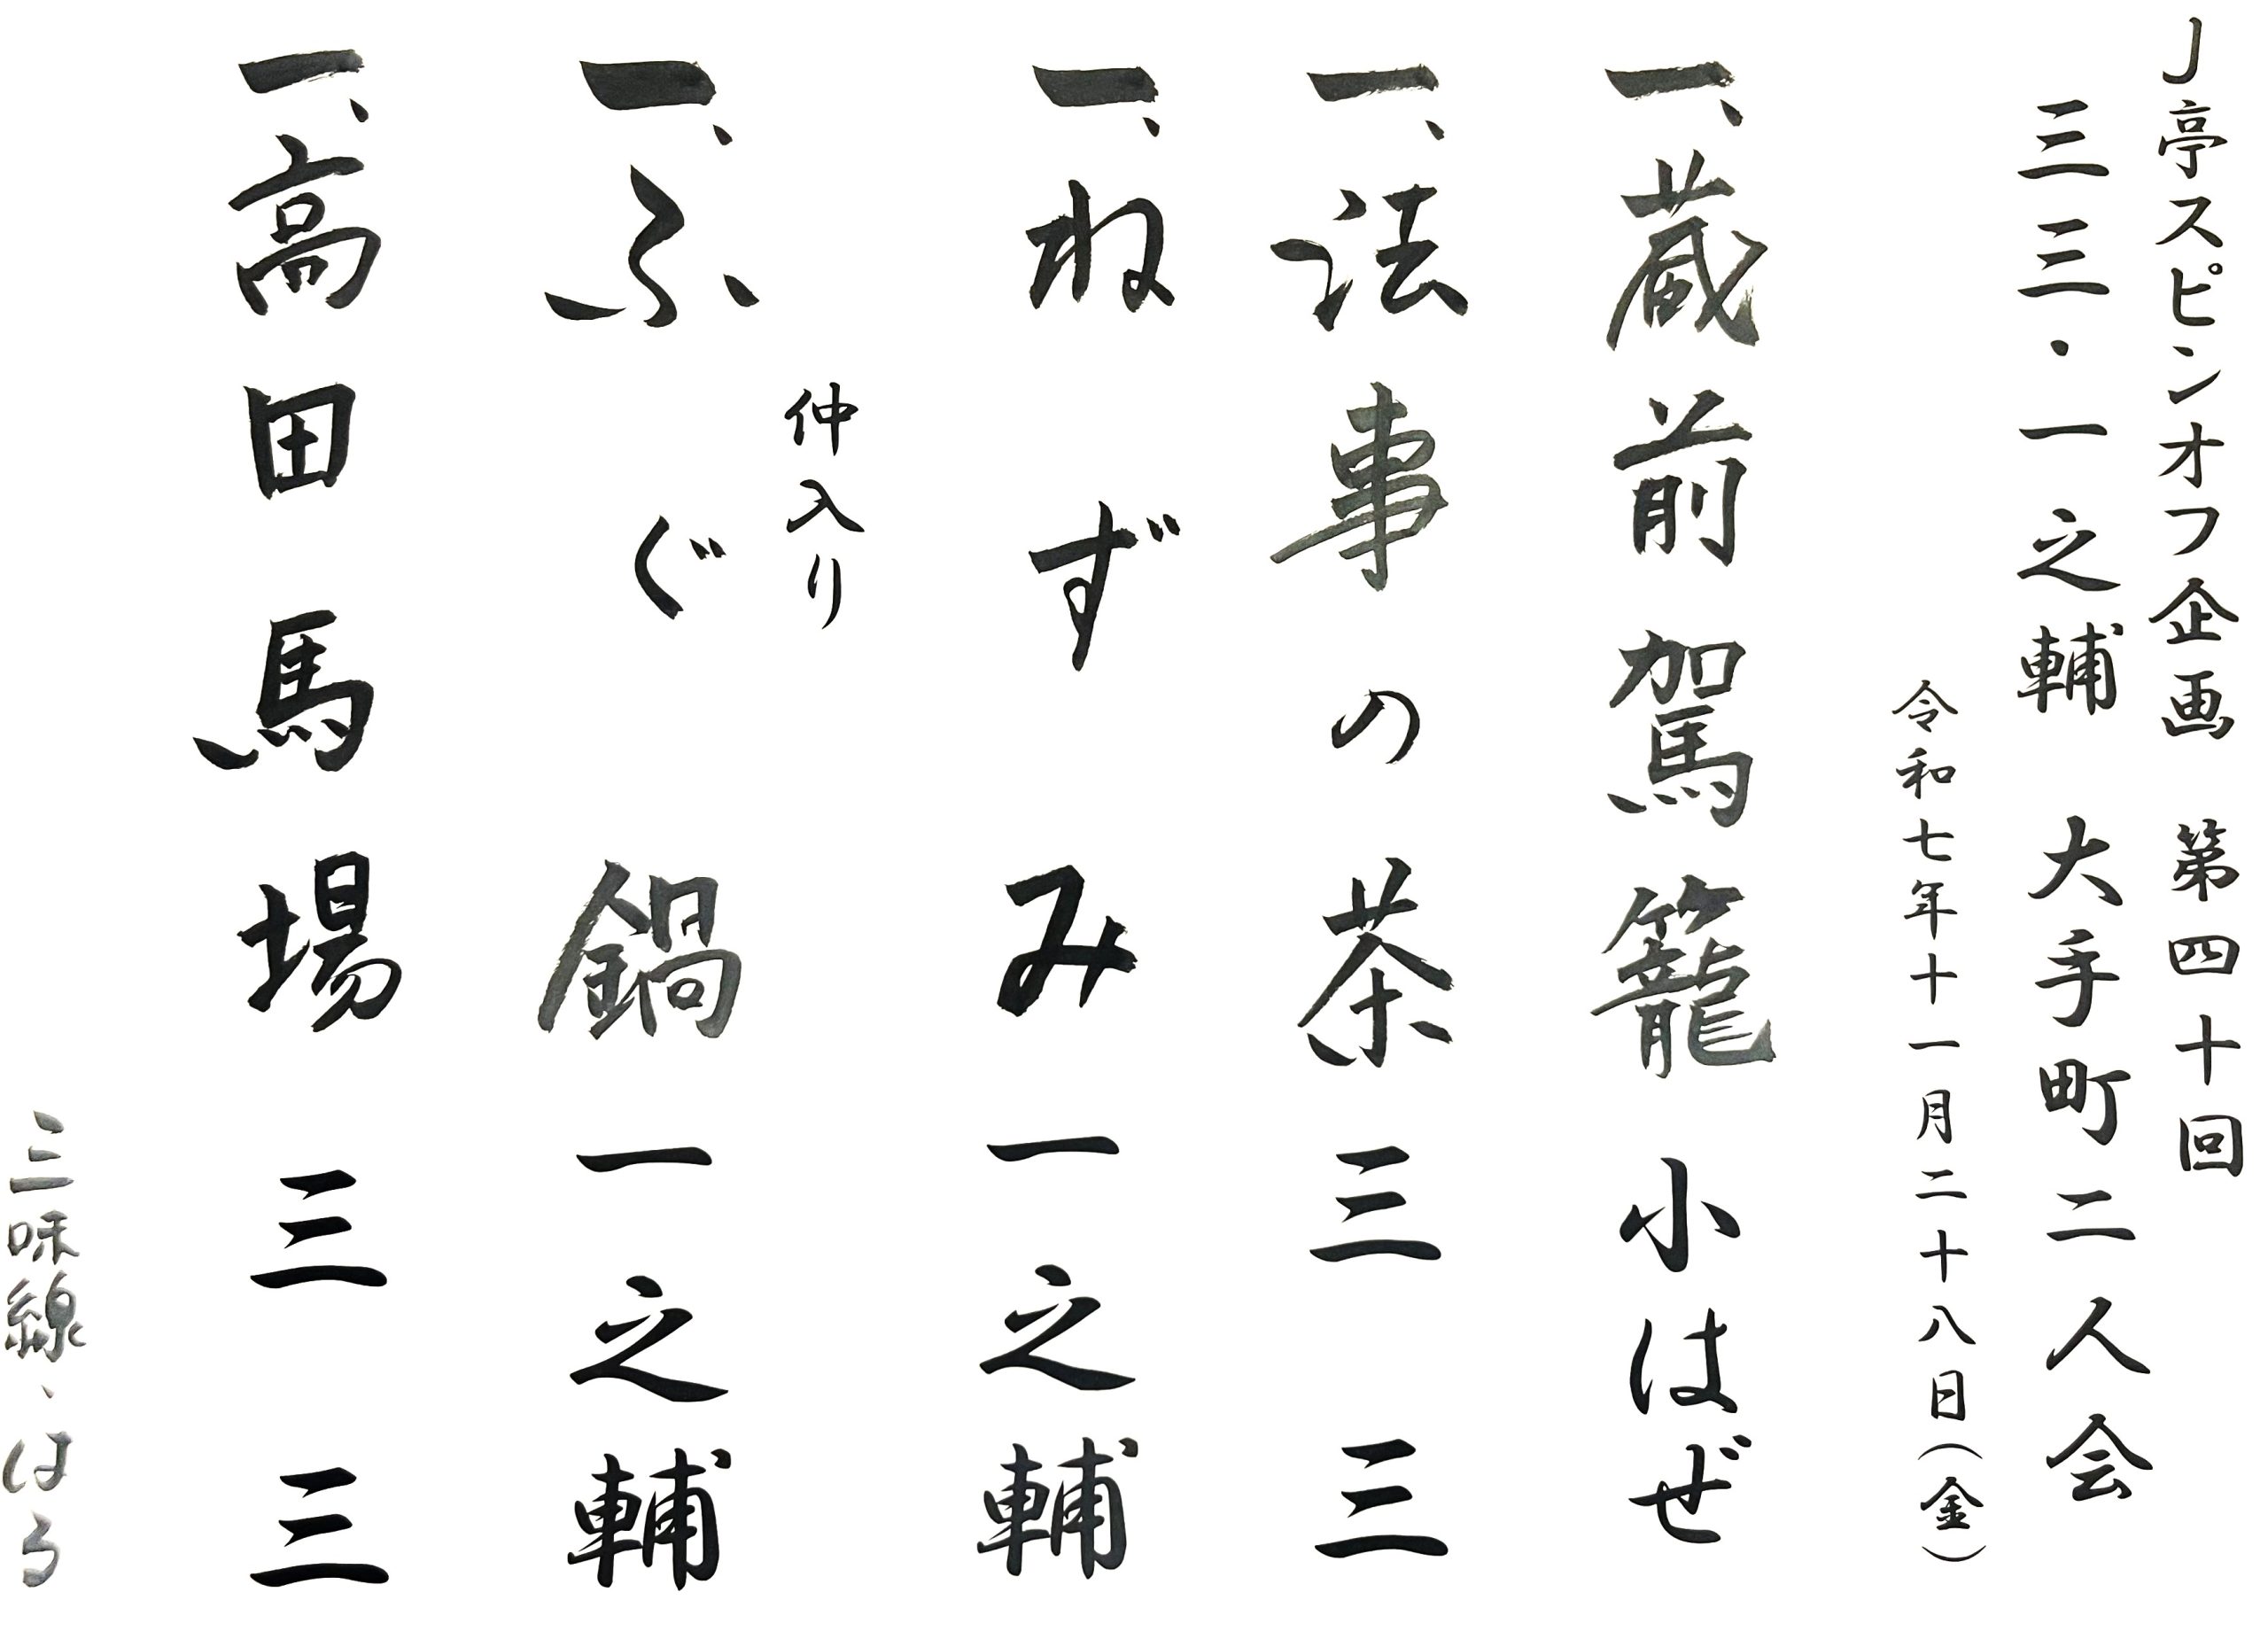 J亭スピンオフ企画 第四十回
三三・一之輔 大手町二人会
令和七年十一月二十八日(金)
一、蔵前駕籠 小はぜ
一、法事の茶 三三
一、ねずみ 一之輔
仲入り
一、ふぐ鍋 一之輔
一、高田馬場 三三
三味線、はる